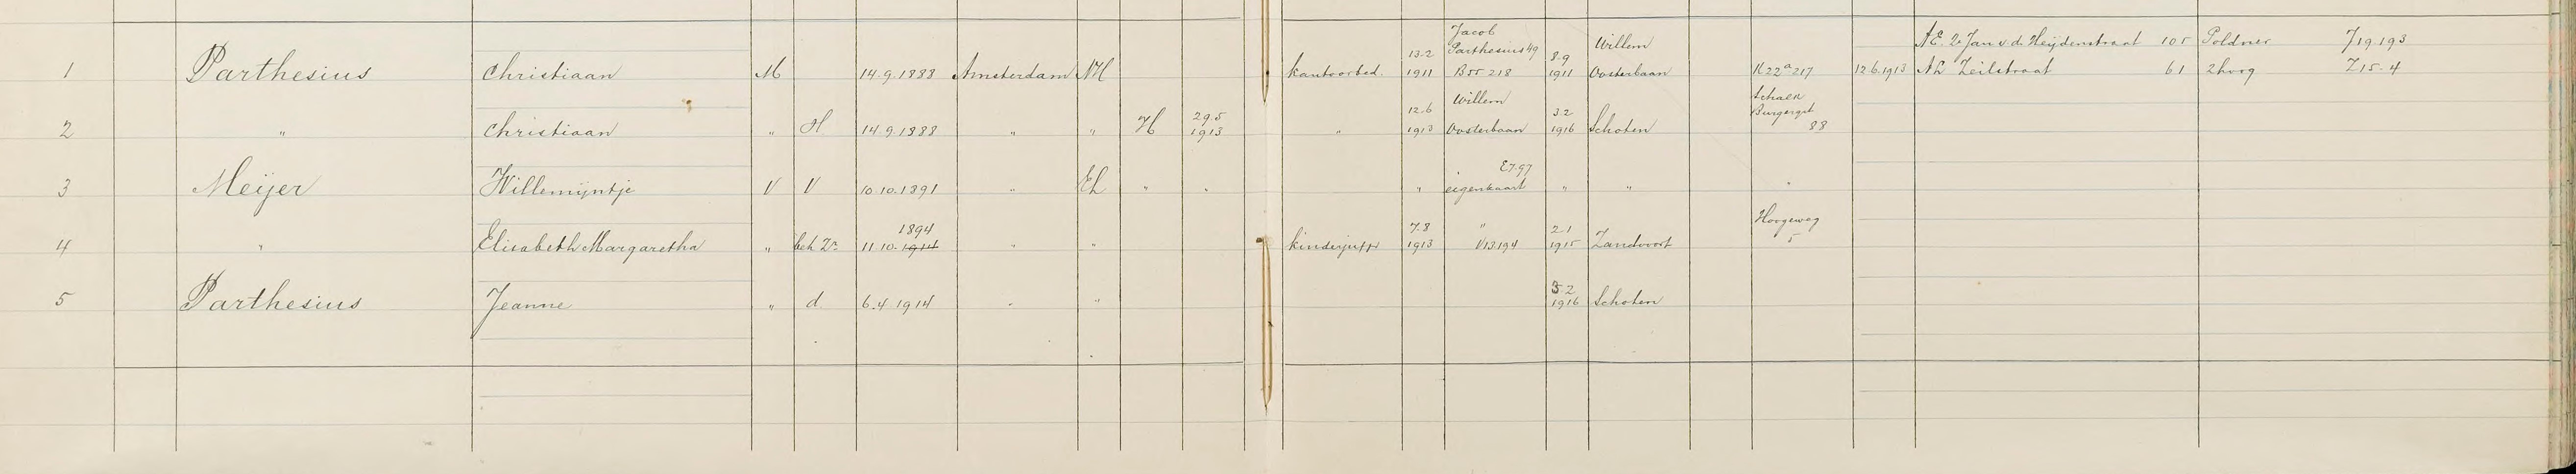 1 Parthesius Christiaan M 14.9.1888 Amsterdam NH kantoorbed. 13.2 1911 Jacob Parthesius 49 B55 218 8.9 1911 Willem Oosterbaan K22a 217 AE. 2e Jan v d Heijdenstraat 105 Poldner J19 193
12.6.1913 AL Zeilstraat 61 2hoog Z15.4
2 " Christiaan " H 14.9.1888 " " H 29.5 1913 " 12.6 1913 Willem Oosterbaan 3.2 1916 Schoten Schalk Burgergt 88
3 Meijer Willemijntje V V 10.10.1891 " EL " " " eigen kaart E7.97 " "
4 " Elisabeth Margaretha " beh Zr 11.10.1914 1894 " " kinderjuffr 7.8 1913 " V13.194 2.1 1915 Zandvoort Hoogeweg 5
5 Parthesius Jeanne " d 6.4.1914 " " 3.2 1916 Schoten